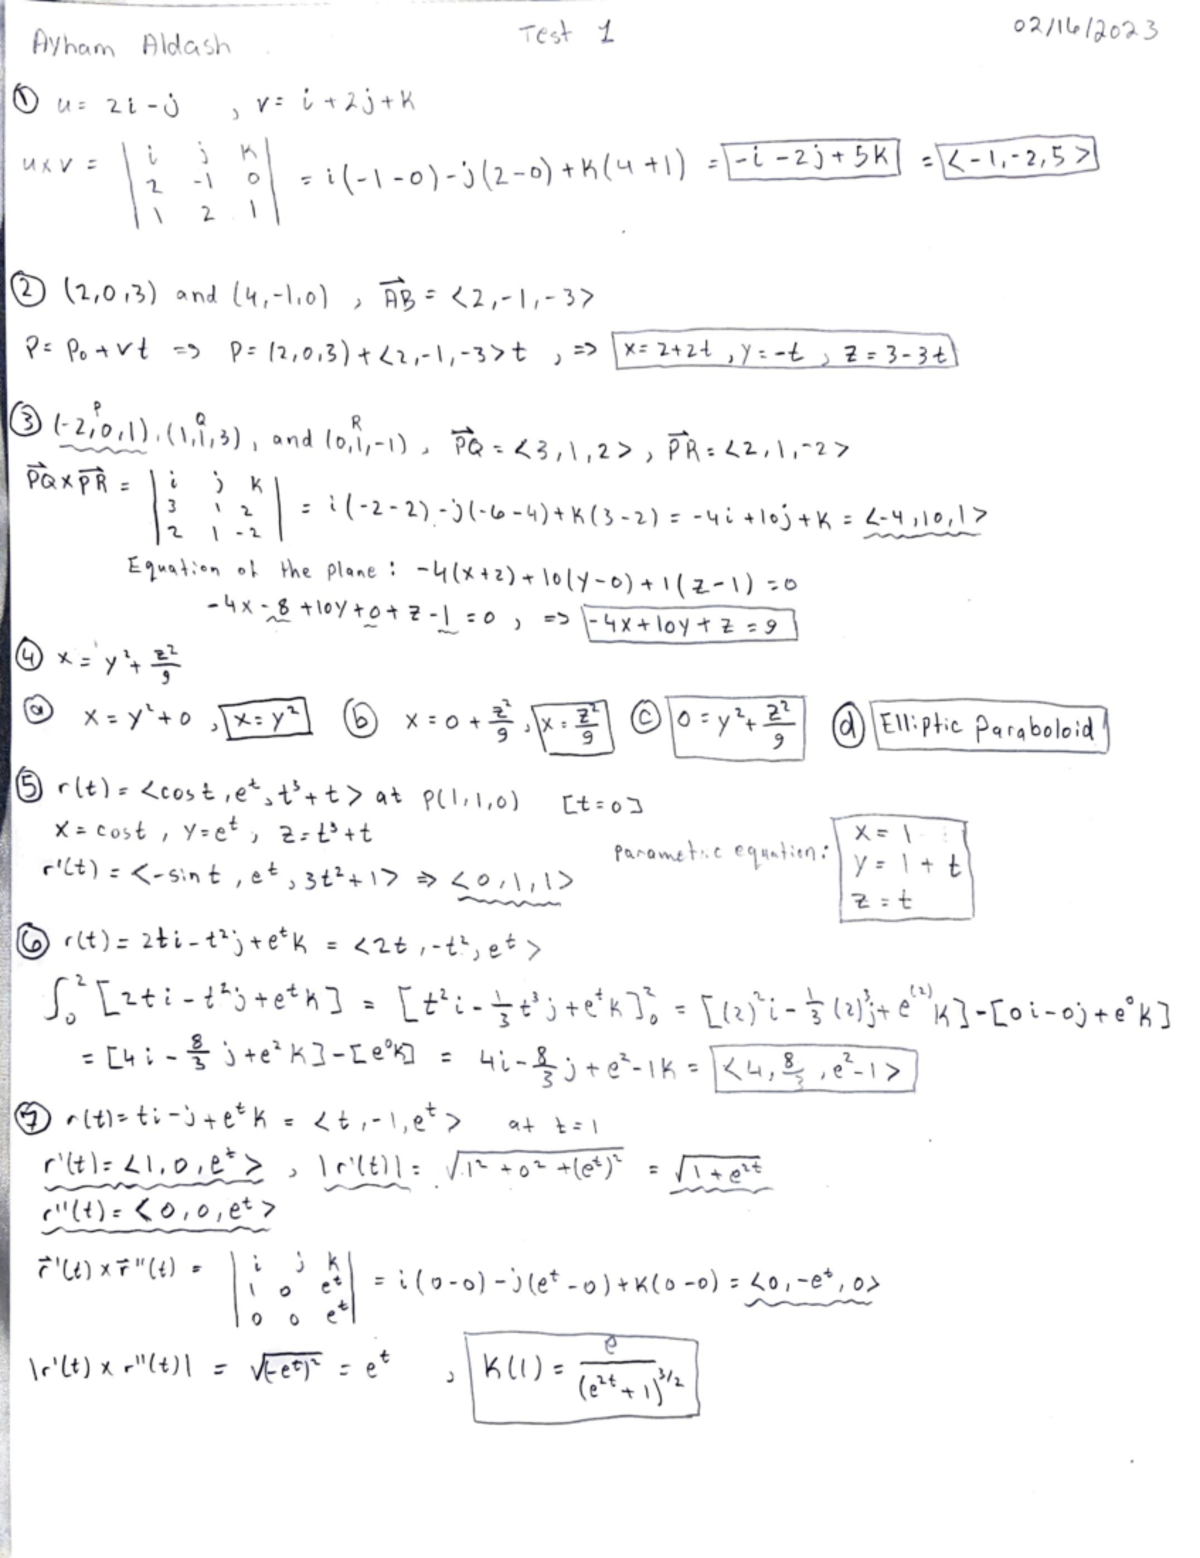 Ayham Aldash Test 1 02/16/2023
① u = 2i - j , v = i + 2j + k
u x v = | i j k | = i(-1-0) - j(2-0) + k(4+1) = -i - 2j + 5k = <-1,-2,5>
2 -1 0
1 2 1
② (2,0,3) and (4,-1,0) , AB = <2,-1,-3>
P = P₀ + vt => P = (2,0,3) + <2,-1,-3>t , => x = 2+2t , y = -t , z = 3-3t
P Q R
③ (-2,0,1), (1,1,3), and (0,1,-1) , PQ = <3,1,2> , PR = <2,1,-2>
PQ x PR = | i j k | = i(-2-2) - j(-6-4) + k(3-2) = -4i + 10j + k = <-4,10,1>
3 1 2
2 1 -2
Equation of the plane : -4(x+2) + 10(y-0) + 1(z-1) = 0
-4x - 8 + 10y + 0 + z - 1 = 0 , => -4x + 10y + z = 9
④ x = y² + z²/9
ⓐ x = y² + 0 , x = y² ⓑ x = 0 + z²/9 , x = z²/9 ⓒ 0 = y² + z²/9 ⓓ Elliptic Paraboloid
⑤ r(t) = <cost, eᵗ, t³+t> at P(1,1,0) [t=0]
x = cost , y = eᵗ , z = t³+t
r'(t) = <-sint, eᵗ, 3t²+1> => <0,1,1> parametric equation: x = 1
y = 1 + t
z = t
⑥ r(t) = 2ti - t²j + eᵗk = <2t, -t², eᵗ>
∫₀² [2ti - t²j + eᵗk] = [t²i - 1/3 t³j + eᵗk]₀² = [(2)²i - 1/3 (2)³j + e⁽²⁾k] - [0i - 0j + e⁰k]
= [4i - 8/3 j + e²k] - [e⁰k] = 4i - 8/3 j + e²-1k = <4, 8/3, e²-1>
⑦ r(t) = ti - j + eᵗk = <t, -1, eᵗ> at t = 1
r'(t) = <1, 0, eᵗ> , |r'(t)| = √(1² + 0² + (eᵗ)²) = √(1 + e²ᵗ)
r''(t) = <0, 0, eᵗ>
r'(t) x r''(t) = | i j k | = i(0-0) - j(eᵗ-0) + k(0-0) = <0, -eᵗ, 0>
1 0 eᵗ
0 0 eᵗ
|r'(t) x r''(t)| = √(-eᵗ)² = eᵗ , K(1) = e/(e²ᵗ + 1)^3/2